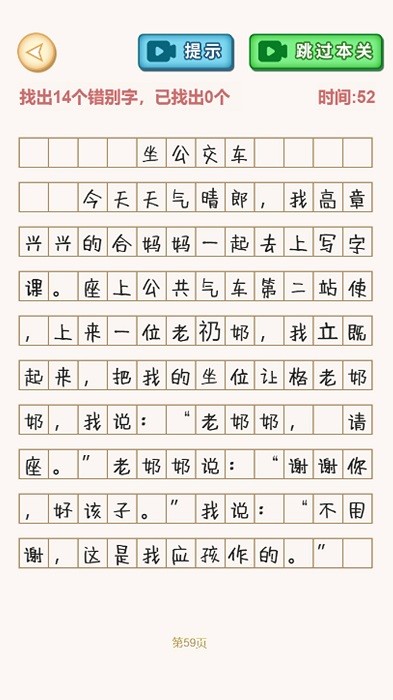 提示
跳过本关
找出14个错别字，已找出0个
时间:52
坐公交车
今天天气晴郎，我高章
兴兴的合妈妈一起去上写字
课。座上公共气车第二站使
，上来一位老礽奶，我立既
起来，把我的坐位让格老奶
奶，我说：“老奶奶， 请
座。”老奶奶说：“谢谢你
，好该子。”我说：“不用
谢，这是我应孩作的。”
第59页